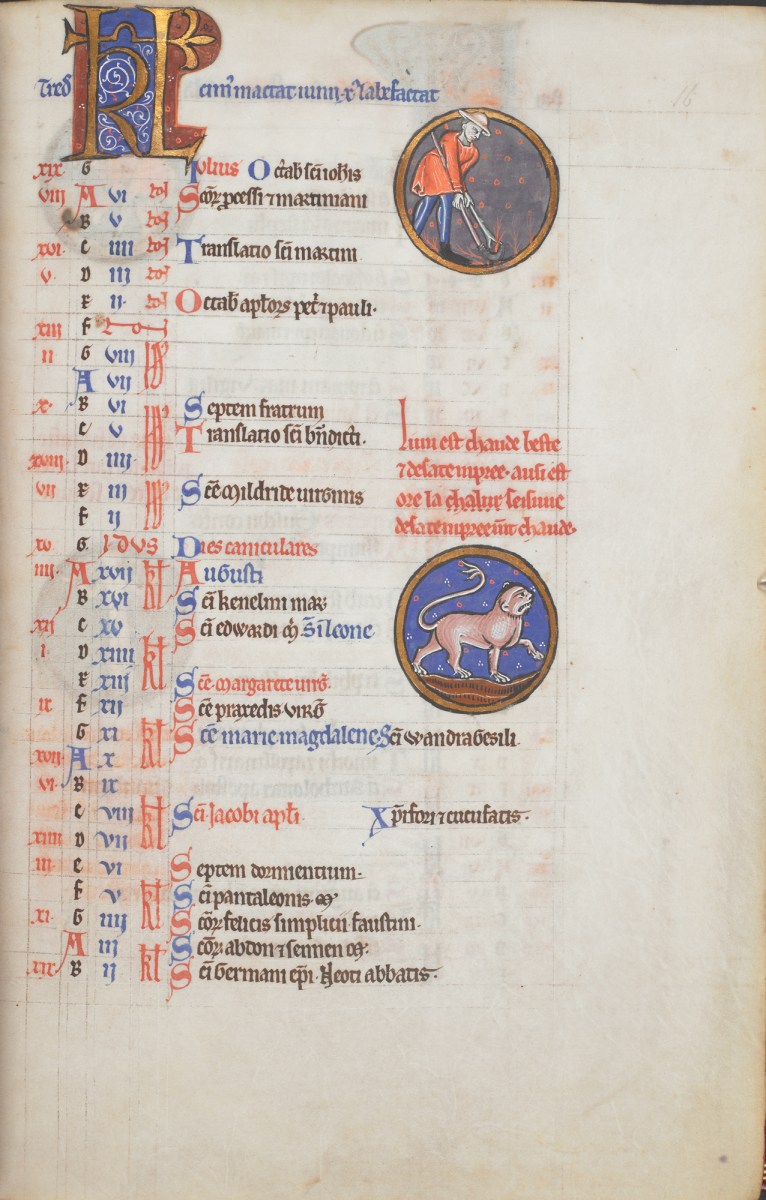 KL
Tred
cim' mactat iulii x' labefactat
xix G Iulius Octab sci iohis
viii A vi No Scor pcessi ⁊ martiniani
B v No
xvi c iiii No Translatio sci martini
v D iii No
E ii No Octab aplors pet' ⁊ pauli
xiii f No
ii G viii Id
A vii
x B vi Id Septem fratrum
c v Translatio sci bndicti
xviii D iiii
vii E iii Id Sce Mildride uirginis
f ii
xv G IDUS Dies caniculares
iiii A xvii kl Augusti
B xvi Sci kenelmi mar
xii c xv Sci edwardi m
i D xiiii kl
E xiii Sce Margarete uirg
ix f xii Sce praxedis virg
G xi kl Sce marie magdalene Sci Wandragesili
xvii A x
vi B ix
c viii kl Sci Jacobi apli Xpifori ⁊ cucufatis
xiiii D vii
iii E vi Septem dormientium
f v kl Sci pantaleonis m
xi G iiii Scor felicis simplicii faustini
A iii kl Scor abdon ⁊ sennen m
xix B ii Sci Germani epi Neoti abbatis
Iuin est chaude beste
⁊ desatempree ausi est
ore la chalur
desatempree chaude
16